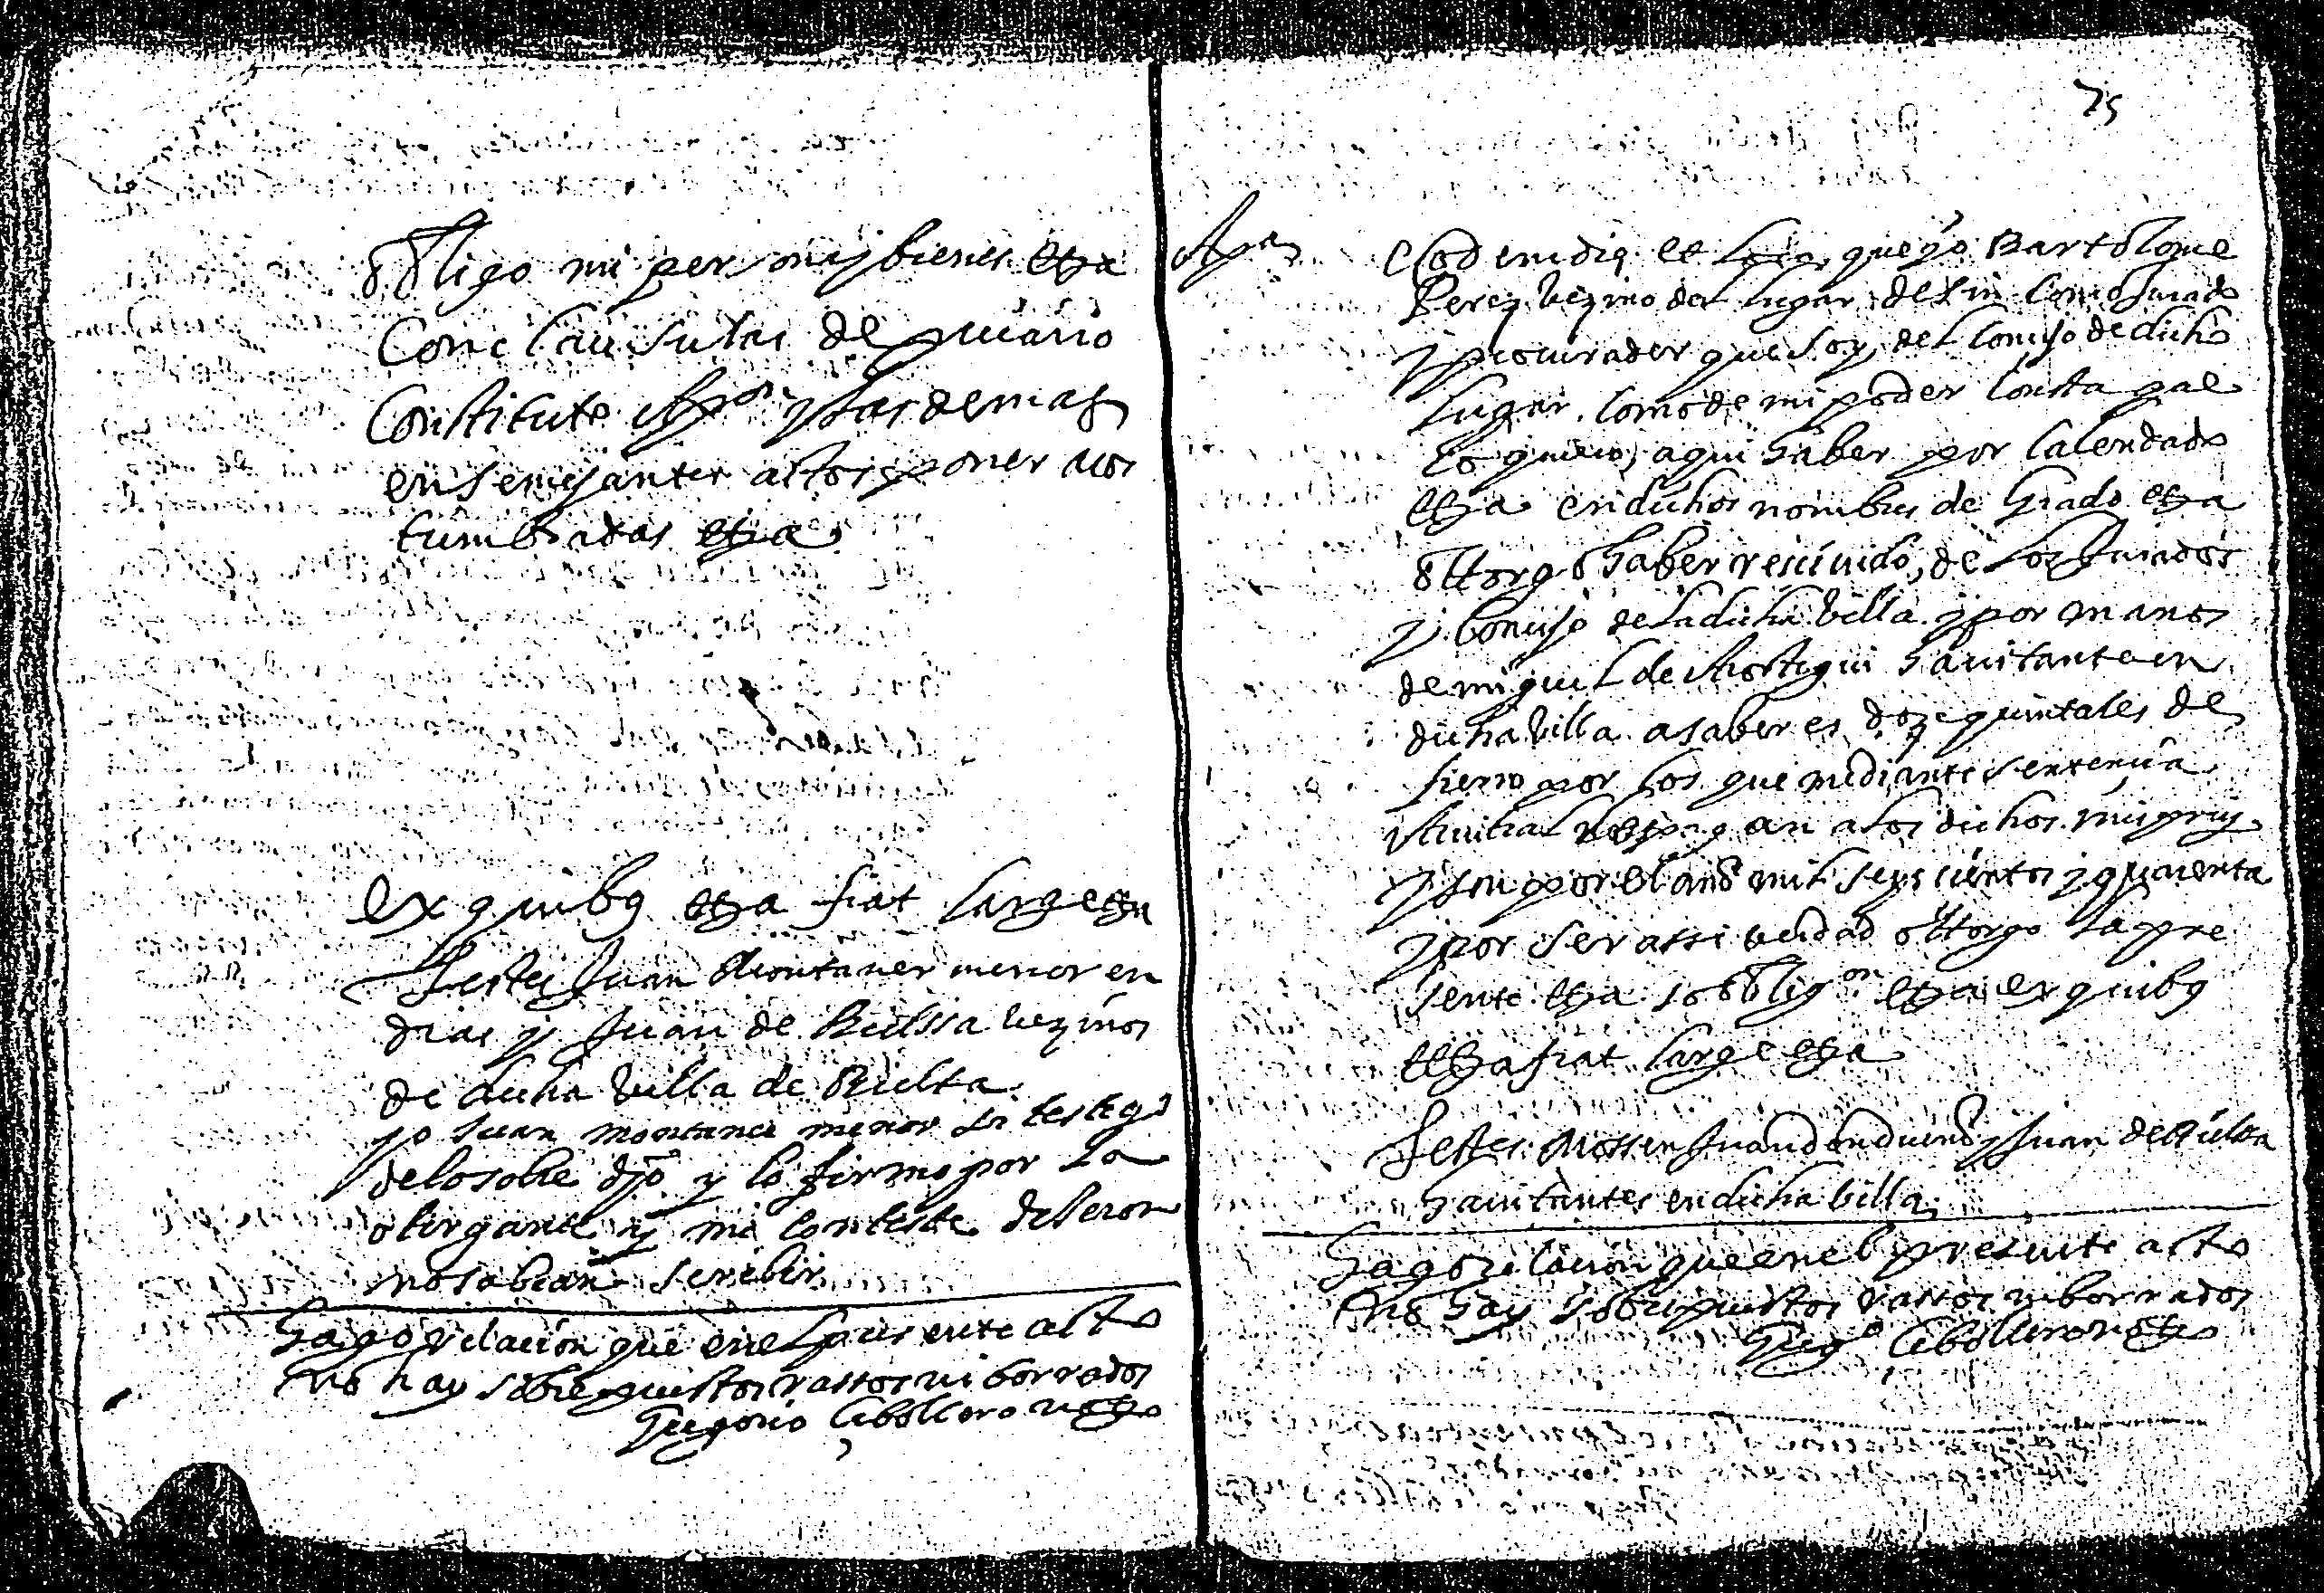 obligo mi persona y bienes etta
Con clausulas de precario
Constituto Apon y las demas
en semejantes actos poner acos
tumbradas etta
ex quibus etta fiat large etta
Testes Juan Montaner menor en
dias y Juan de Bielssa vezinos
de dicha villa de Bielsa
yo Juan montaner menor so testigo
de lo sobre djo y lo firmo por la
otorgante y mi conteste dijeron
no sabian screbir
Hago relacion que en el presente acto
no hay sobrepuestos rassos ni borrados
Gregorio Cebollero notto
75
Apoca
Eod em die et loco que yo Bartolome
Perez vezino del lugar de Sin como Jurado
y procurador que soy del Concejo de dicho
lugar, como de mi poder consta que
lo quiero, aqui haber por calendado
etta en dichos nombres de Grado etta
ottorgo haber rescivido, de los Jurados
y Concejo de la dicha villa y por manos
de miguel de Arostegui havitante en
dicha villa a saber es doze quintales de
fierro por los que mediante sentencia
Arbitral les pagan a los dichos mis prinς
y son por el año mil seys cientos y quarenta
y por ser assi verdad ottorgo la pre
sente etta y obligon etta ex quibus
etta fiat large etta
Testes Mossen Juan donduenο y Juan de Bielsa
havitantes en dicha villa
Hago relacion que en el presente acto
no hay sobrepuestos rassos ni borrados
Grego Cebollero notto